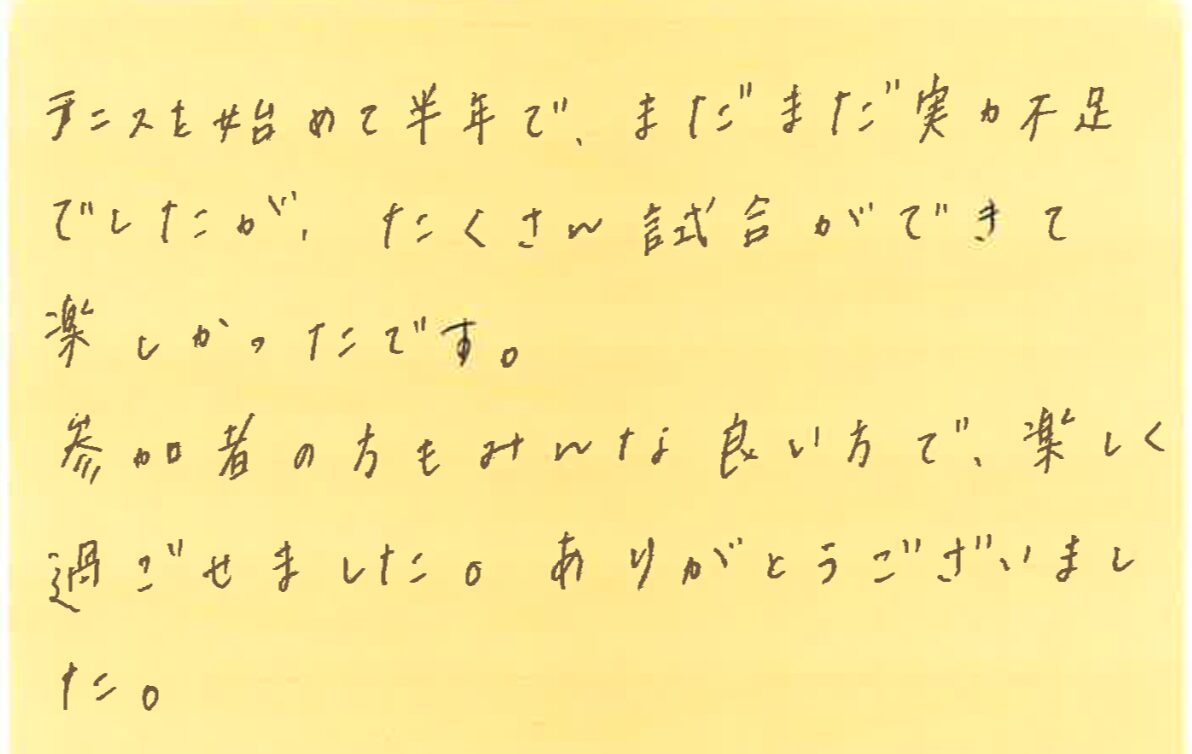 テニスを始めて半年で、まだまだ実力不足
でしたが、たくさん試合ができて
楽しかったです。
参加者の方もみんな良い方で、楽しく
過ごせました。ありがとうございまし
た。